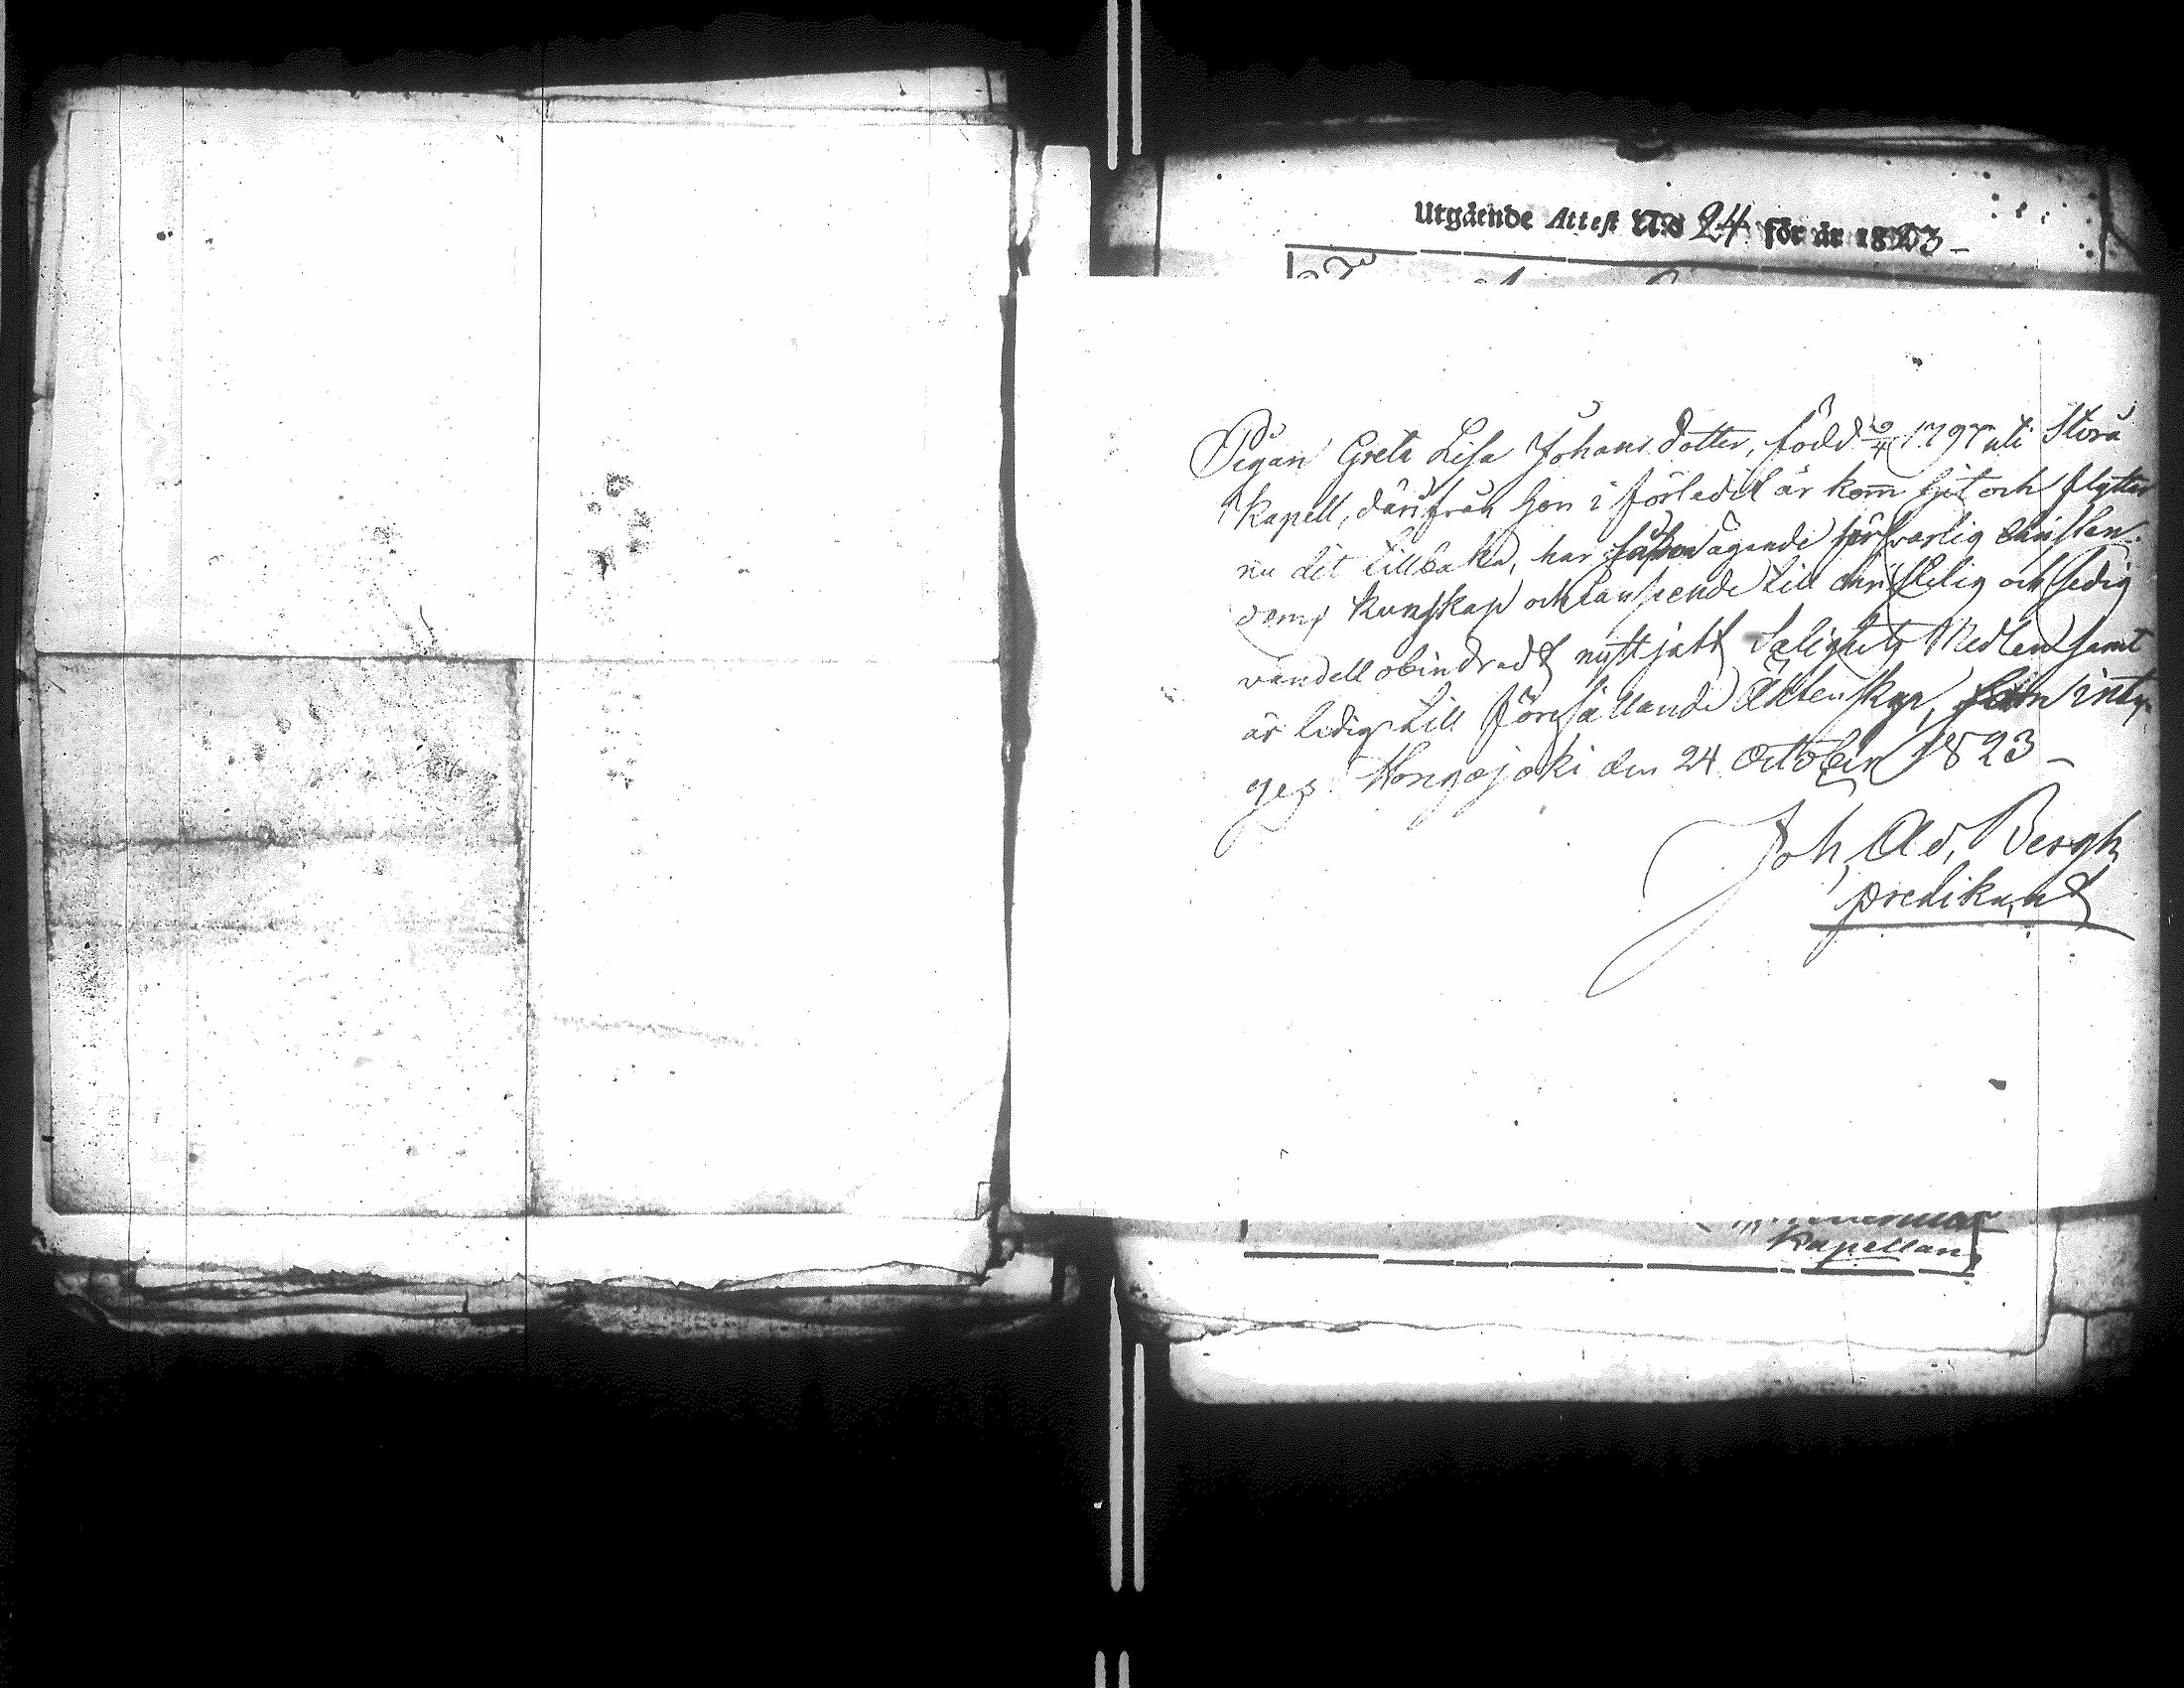 Utgående Attest N:o 24 för år 1823
Pigan Greta Lisa Johans dotter, född 1797 uti Storå
Kapell, därifrån hon i förledit år kom hit och flytter
nu dit tillbaka, har såsom ägande försvarlig Christen-
doms kunskap och ansende till christelig och sedig
vandell obindradt nyttjatt Salighets Medlen samt
är ledig till förefallande Äktenskap, som inty-
gas Hongojoki den 24 October 1823
Joh, Ad, Bergh
predikant
Kapellan